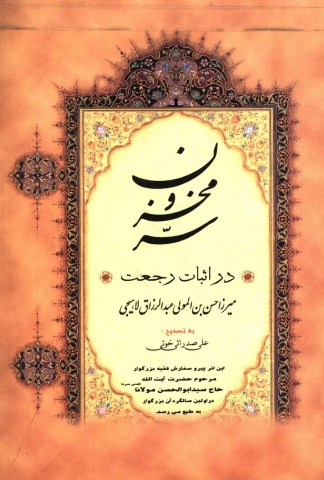 سرّ مخزون
در اثبات رجعت
میرزا حسن بن المولی عبدالرزاق لاهیجی
به تصحیح :
علی صدرائی خوئی
این اثر پیرو سفارش فقیه بزرگوار
مرحوم حضرت آیت الله
حاج سیدابوالحسن مولانا قدس سره
در اولین سالگرد آن بزرگوار
به طبع می رسد.